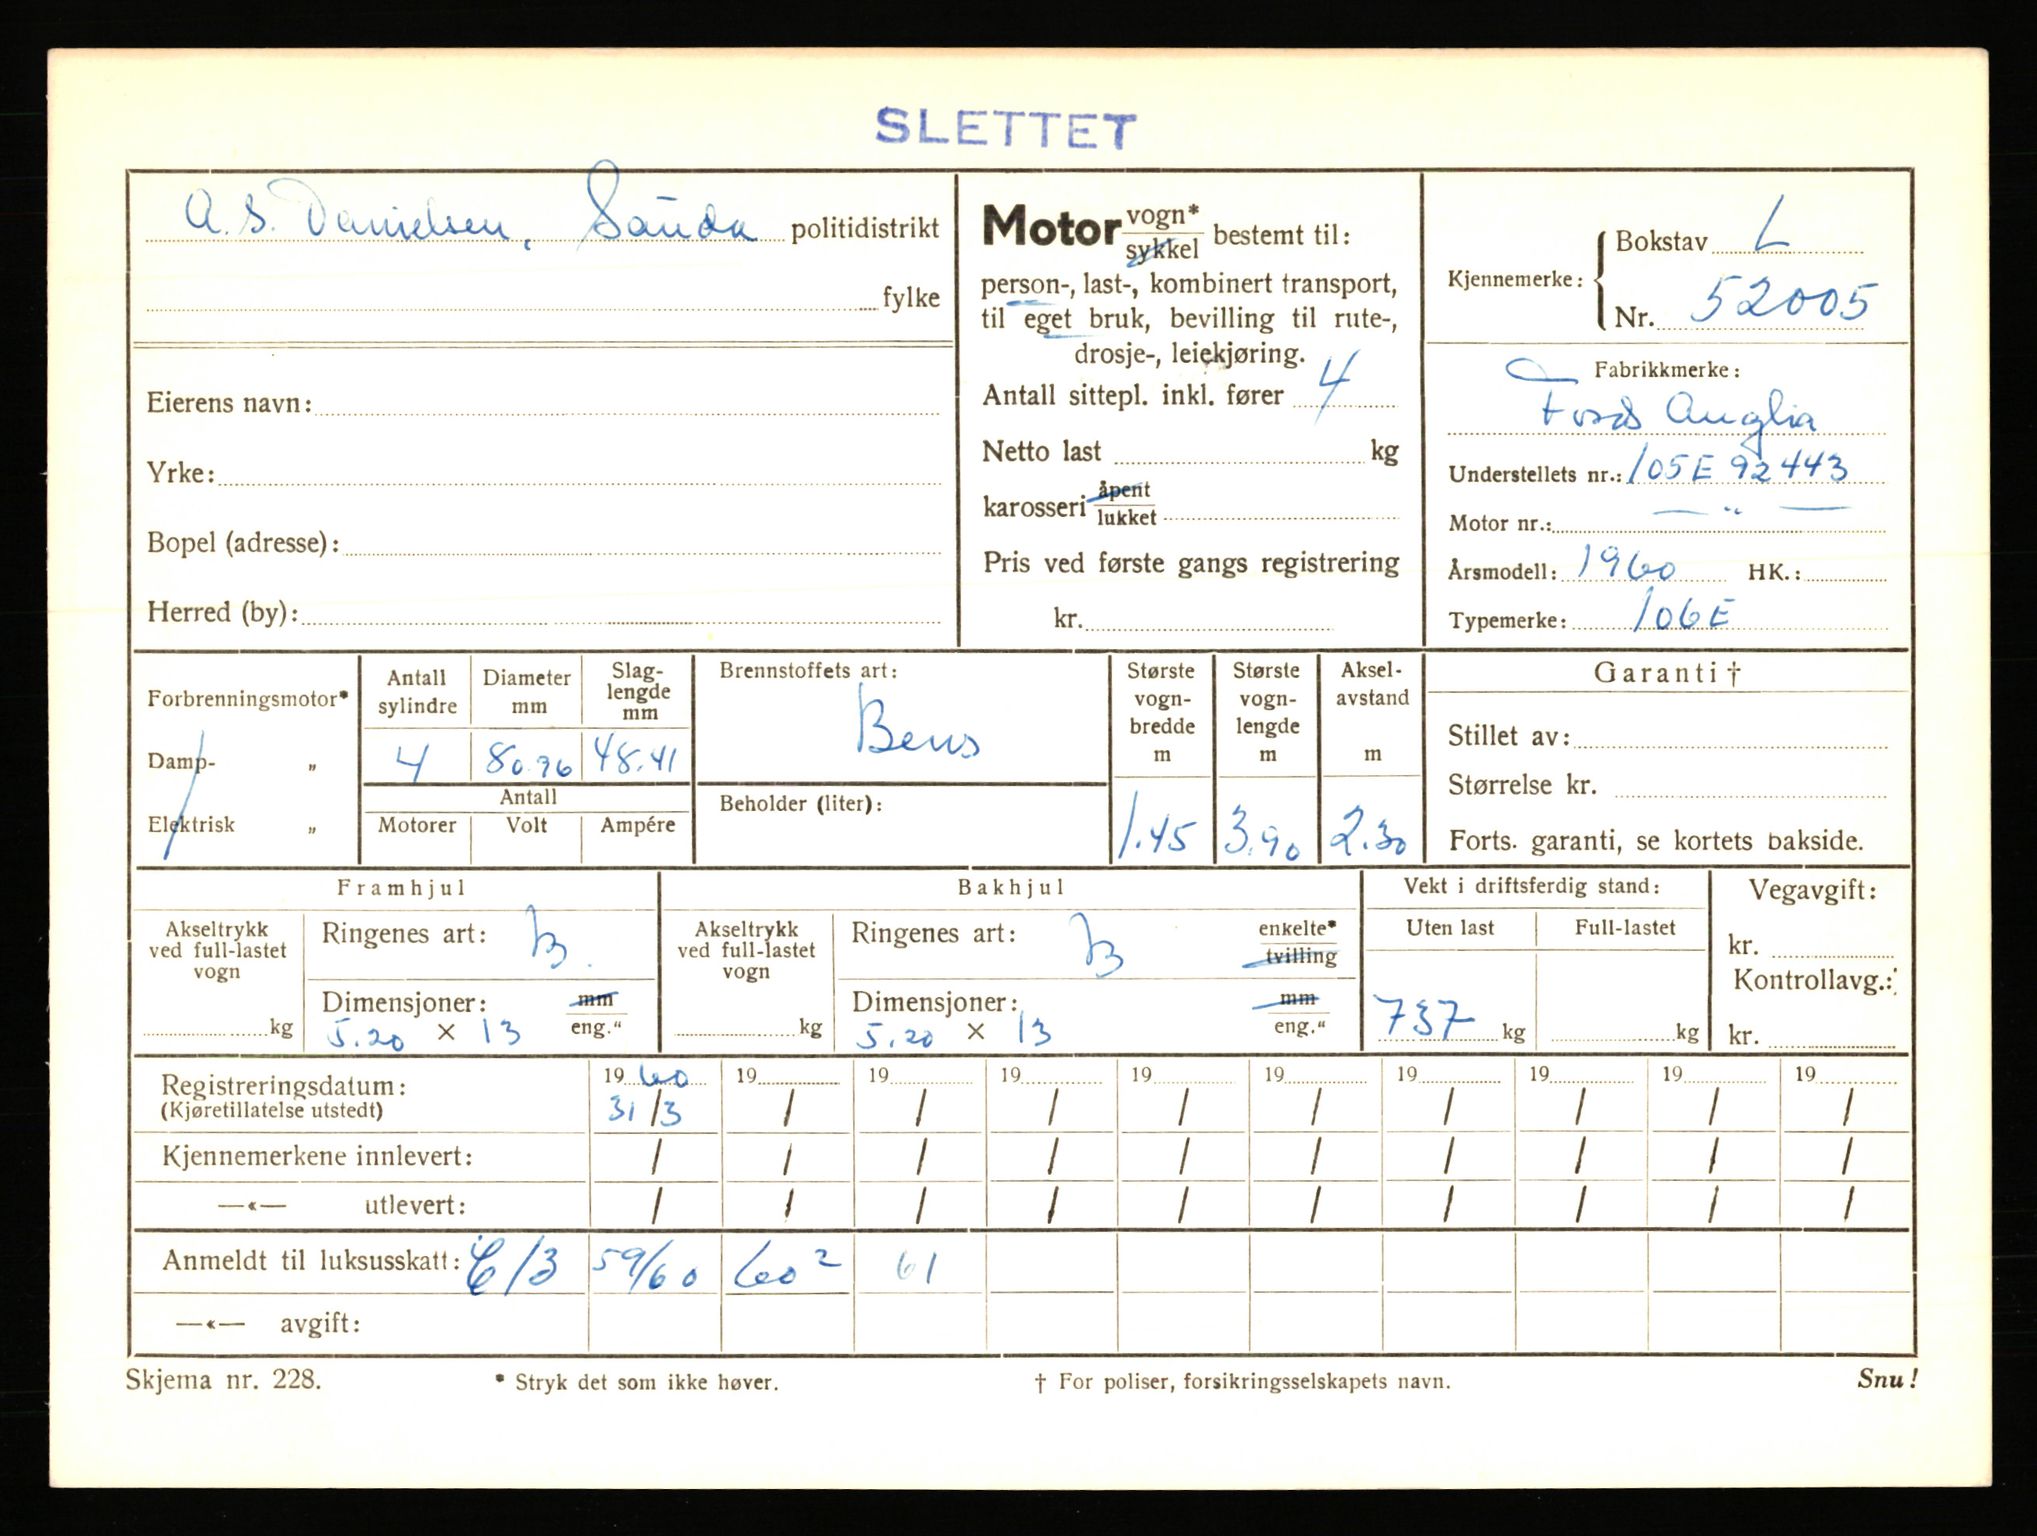 SLETTET
A. S. Danielsen, Sauda politidistrikt
fylke
Eierens navn:
Yrke:
Bopel (adresse):
Herred (by):
Motor vogn* sykkel bestemt til:
person-, last-, kombinert transport,
til eget bruk, bevilling til rute-,
drosje-, leiekjøring.
Antall sittepl. inkl. fører 4
Netto last kg
karosseri åpent lukket
Pris ved første gangs registrering
kr.
Kjennemerke: Bokstav L
Nr. 52005
Fabrikkmerke:
Ford Anglia
Understellets nr.: 105E 92443
Motor nr.: — " —
Årsmodell: 1960 HK.:
Typemerke: 106E
Forbrenningsmotor*
Damp- "
Elektrisk "
Antall sylindre Diameter mm Slag-lengde mm
4 80.96 48.41
Antall
Motorer Volt Ampére
Brennstoffets art:
Bens
Beholder (liter):
Største vogn-bredde m
1.45
Største vogn-lengde m
3.90
Aksel-avstand m
2.30
Garanti †
Stillet av:
Størrelse kr.
Forts. garanti, se kortets bakside.
Framhjul
Akseltrykk ved full-lastet vogn
kg
Ringenes art: B.
Dimensjoner: mm eng."
5.20 × 13
Bakhjul
Akseltrykk ved full-lastet vogn
kg
Ringenes art: B enkelte* tvilling
Dimensjoner: mm eng."
5.20 × 13
Vekt i driftsferdig stand:
Uten last Full-lastet
737 kg kg
Vegavgift:
kr.
Kontrollavg.:
kr.
Registreringsdatum: 19 60 19 19 19 19 19 19 19 19 19
(Kjøretillatelse utstedt) 31/3 / / / / / / / / /
Kjennemerkene innlevert: / / / / / / / / / /
—«— utlevert: / / / / / / / / / /
Anmeldt til luksusskatt: /3 59/60 60² 61
—«— avgift:
Skjema nr. 228. * Stryk det som ikke høver. † For poliser, forsikringsselskapets navn. Snu!